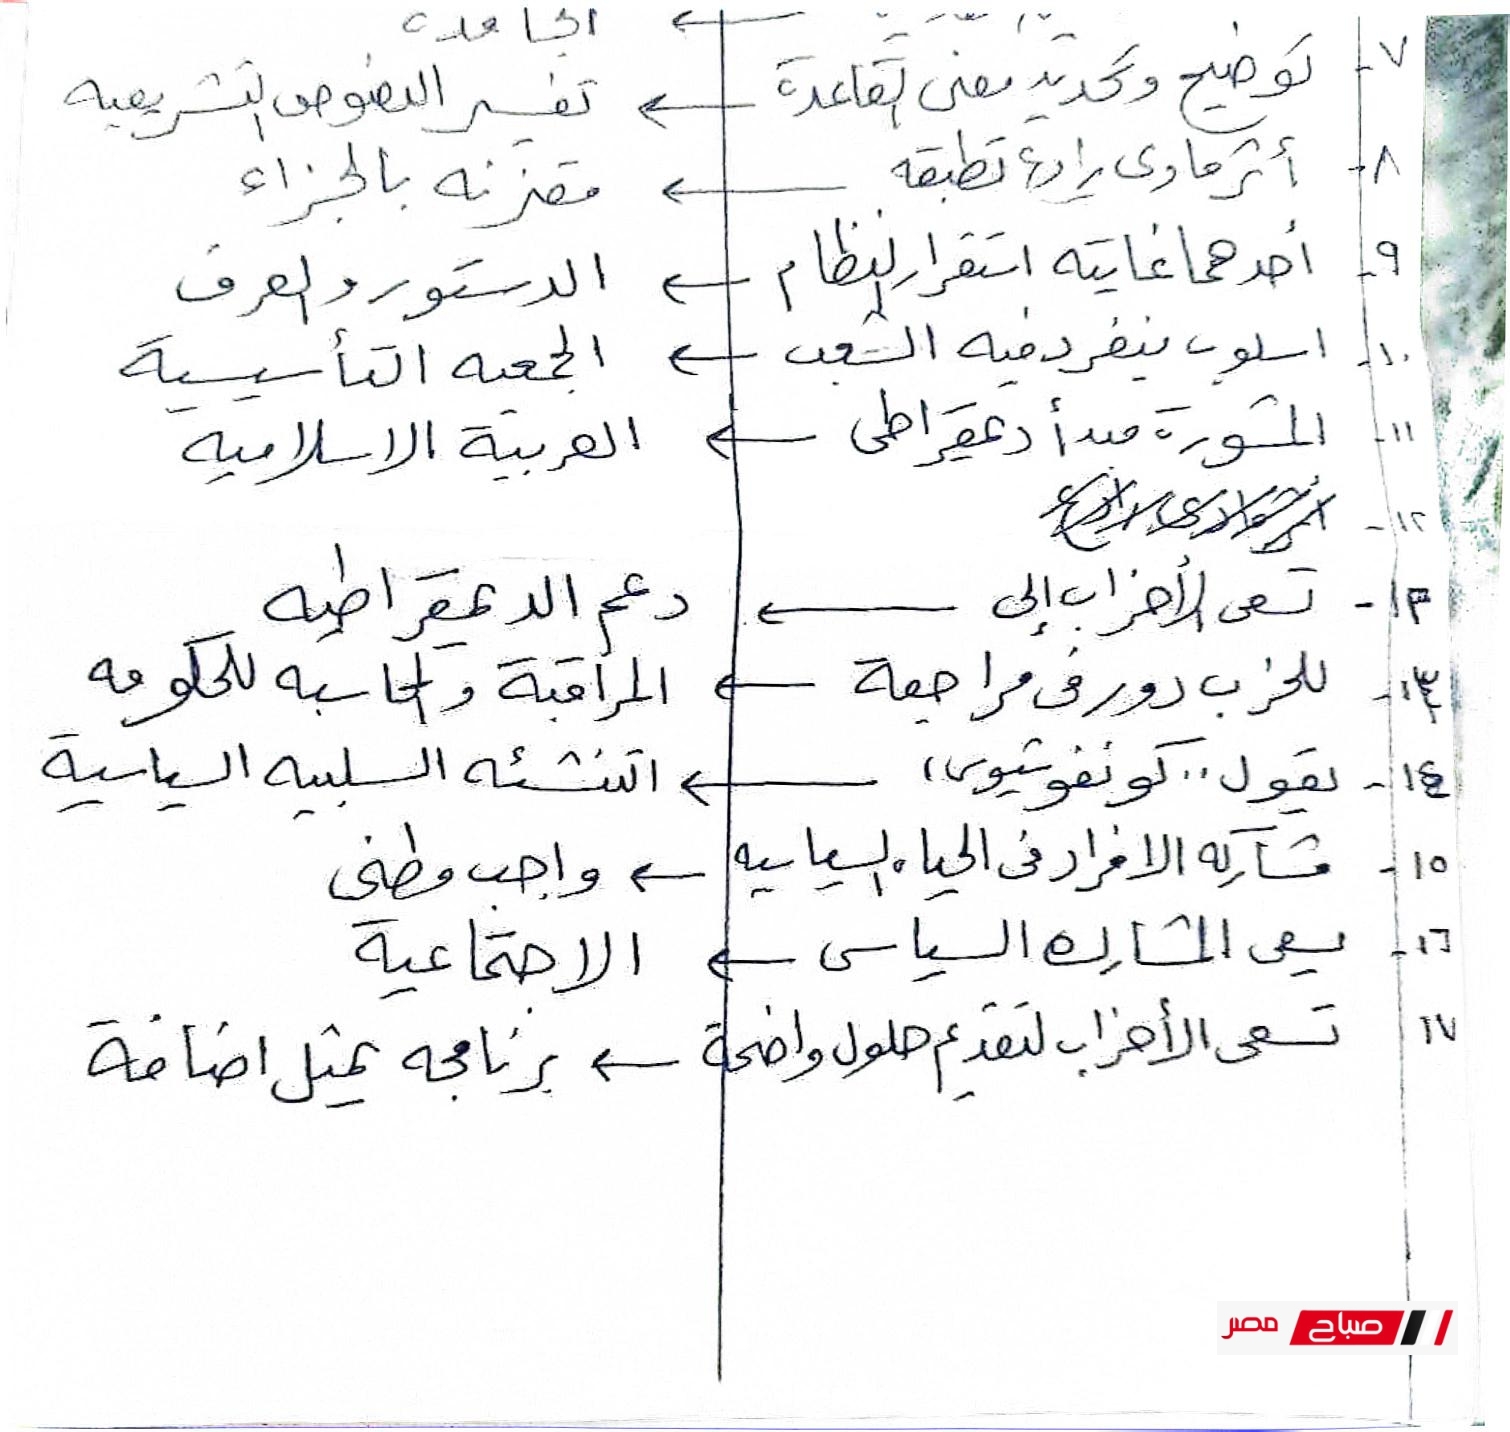 الجامدة ←
٧- توضيح وتحديد معنى القاعدة ← تفسير النصوص التشريعيه
٨- أثر مادى رادع تطبقه ← مقترنه بالجزاء
٩- أحدهما غايته استقرار النظام ← الدستور والعرف
١٠- اسلوب ينفرد فيه الشعب ← الجمعيه التأسيسية
١١- المشورة مبدأ ديمقراطى ← العربية الاسلاميه
١٢-
١٢- تسعى الأحزاب إلى ← دعم الديمقراطيه
١٣- للحزب دور فى مراجعة ← المراقبة والمحاسبه للحكومه
١٤- يقول "كونفوشيوس" ← التنشئه السلبيه السياسية
١٥- مشاركه الافراد فى الحياه السياسيه ← واجب وطنى
١٦- يسعى المشارك السياسى ← الاجتماعية
١٧ تسعى الأحزاب لتقديم حلول واضحة ← برنامجه يمثل اضافة
صباح مصر